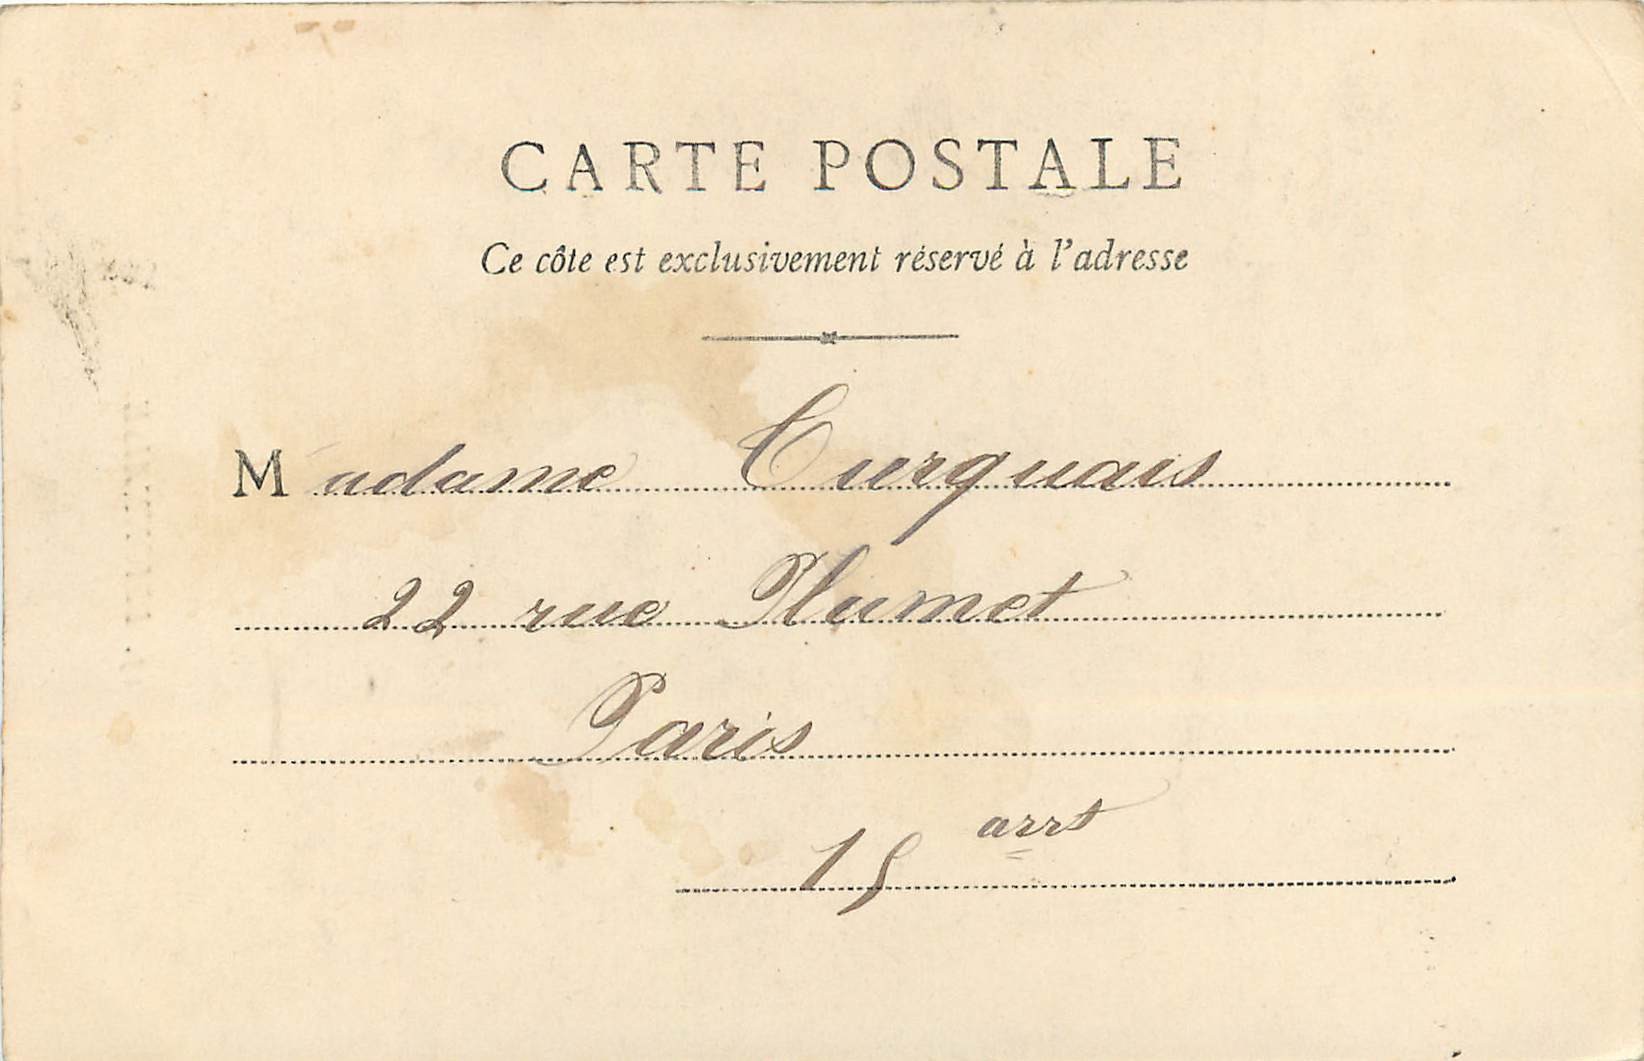 CARTE POSTALE
Ce côte est exclusivement réservé à l'adresse
Madame Turquais
22 rue Plumet
Paris
15 arrt